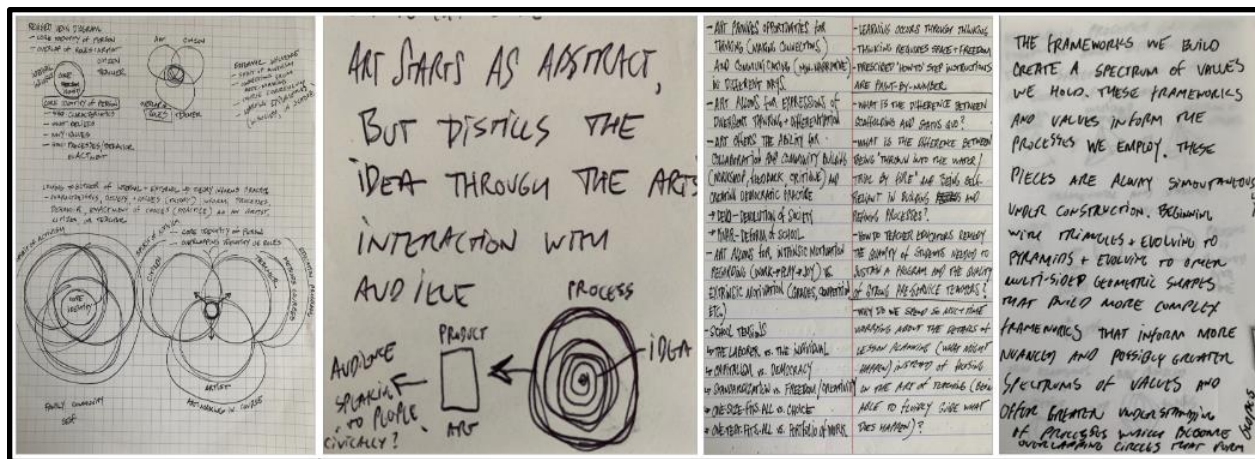 REVISED VENN DIAGRAM
- CORE IDENTITY OF PERSON
- OVERLAP OF ROLES
CITIZEN
TEACHER
ART
CITIZEN
CORE
CORE IDENTITY OF PERSON
ROLES
TEACHER
- HOW PROCESSES/BEHAVIOR
CORE IDENTITY OF PERSON
OVERLAPPING IDENTITY OF ROLES
CITIZEN
TEACHER
CORE
IDENTITY
ARTIST
FAMILY COMMUNITY
SELF
ART STARTS AS ABSTRACT,
BUT DISTILLS THE
IDEA THROUGH THE ARTS
INTERACTION WITH
AUDIECE
PROCESS
PRODUCT
IDEA
AUDIENCE
SPEAKING
TO PEOPLE
CIVICALLY?
ART
- ART PROVIDES OPPORTUNITIES FOR
THINKING (MAKING CONNECTIONS)
AND COMMUNICATING (NON-NARRATIVE)
IN DIFFERENT WAYS
- ART ALLOWS FOR EXPRESSIONS OF
DIVERGENT THINKING + DIFFERENTIATION
- ART OFFERS THE ABILITY FOR
COLLABORATION AND COMMUNITY BUILDING
(WORKSHOP, FEEDBACK, CRITIQUE) AND
CREATING DEMOCRATIC PRACTICE
DEVO - DEVOLUTION OF SOCIETY
PINAR - DEFORM OF SCHOOL
- ART ALLOWS FOR INTRINSIC MOTIVATION
REGARDING (WORK + PLAY = JOY) VS.
EXTRINSIC MOTIVATION (GRADES, COMPETITION
ETC.)
- SCHOOL TENSIONS
THE LABORER VS. THE INDIVIDUAL
CAPITALISM VS. DEMOCRACY
STANDARDIZATION VS. FREEDOM/CREATIVITY
ONE SIZE-FITS-ALL VS. CHOICE
ONE TEST-FITS-ALL VS. PORTFOLIO OF WORK
- LEARNING OCCURS THROUGH THINKING
- THINKING REQUIRES SPACE + FREEDOM
- PRESCRIBED "HOW TO" STEP INSTRUCTIONS
ARE PAINT-BY-NUMBER
- WHAT IS THE DIFFERENCE BETWEEN
SCAFFOLDING AND STATUS QUO?
- WHAT IS THE DIFFERENCE BETWEEN
BEING "THROWN INTO THE WATER/
TRIAL BY FIRE" AND BEING SELF-
RELIANT IN BUILDING AND
REFINING PROCESSES?
- HOW DO TEACHER EDUCATORS REMEDY
THE QUANTITY OF STUDENTS NEEDED TO
SUSTAIN A PROGRAM AND THE QUALITY
OF STRONG PRE-SERVICE TEACHERS?
- WHY DO WE SPEND SO MUCH TIME
WORRYING ABOUT THE DETAILS OF
LESSON PLANNING (WHAT MIGHT
HAPPEN) INSTEAD OF FOCUSING
ON THE ART OF TEACHING (BEING
ABLE TO FLUIDLY GUIDE WHAT
DOES HAPPEN)?
THE FRAMEWORKS WE BUILD
CREATE A SPECTRUM OF VALUES
WE HOLD. THESE FRAMEWORKS
AND VALUES INFORM THE
PROCESSES WE EMPLOY. THESE
PIECES ARE ALWAY SIMOUTANEOUS
UNDER CONSTRUCTION. BEGINNING
WITH TRIANGLES + EVOLVING TO
PYRAMIDS + EVOLVING TO OTHER
MULTI-SIDED GEOMETRIC SHAPES
THAT BUILD MORE COMPLEX
FRAMEWORKS THAT INFORM MORE
NUANCED AND POSSIBLY GREATER
SPECTRUMS OF VALUES AND
OFFER GREATER UNDERSTANDING
OF PROCESSES WHICH BECOME
OVERLAPPING CIRCLES THAT FORM